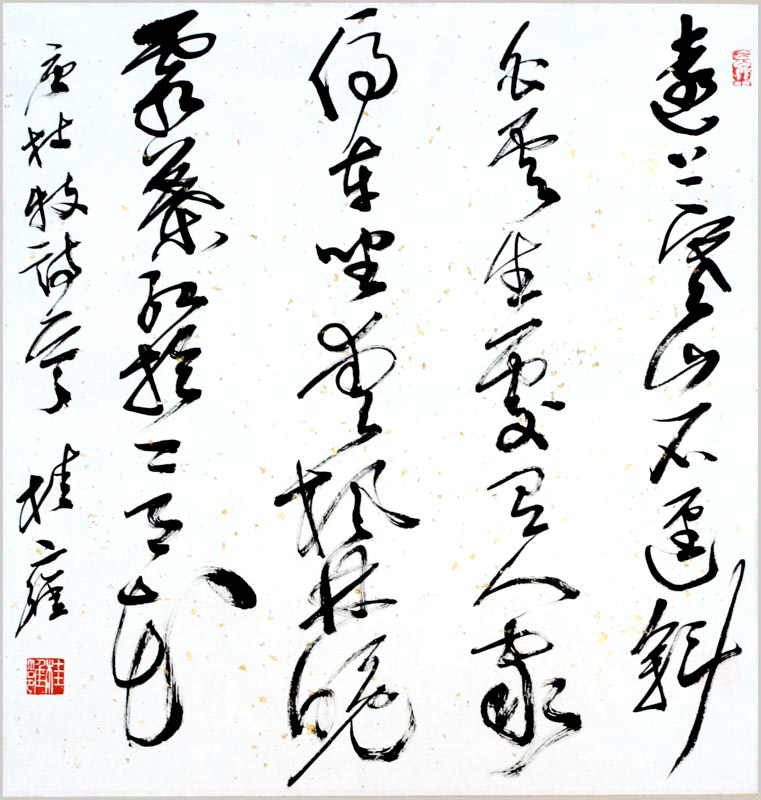 遠上寒山石逕斜
白雲生處有人家
停車坐愛楓林晚
霜葉紅於二月花
唐杜牧詩 桂雍
桂雍